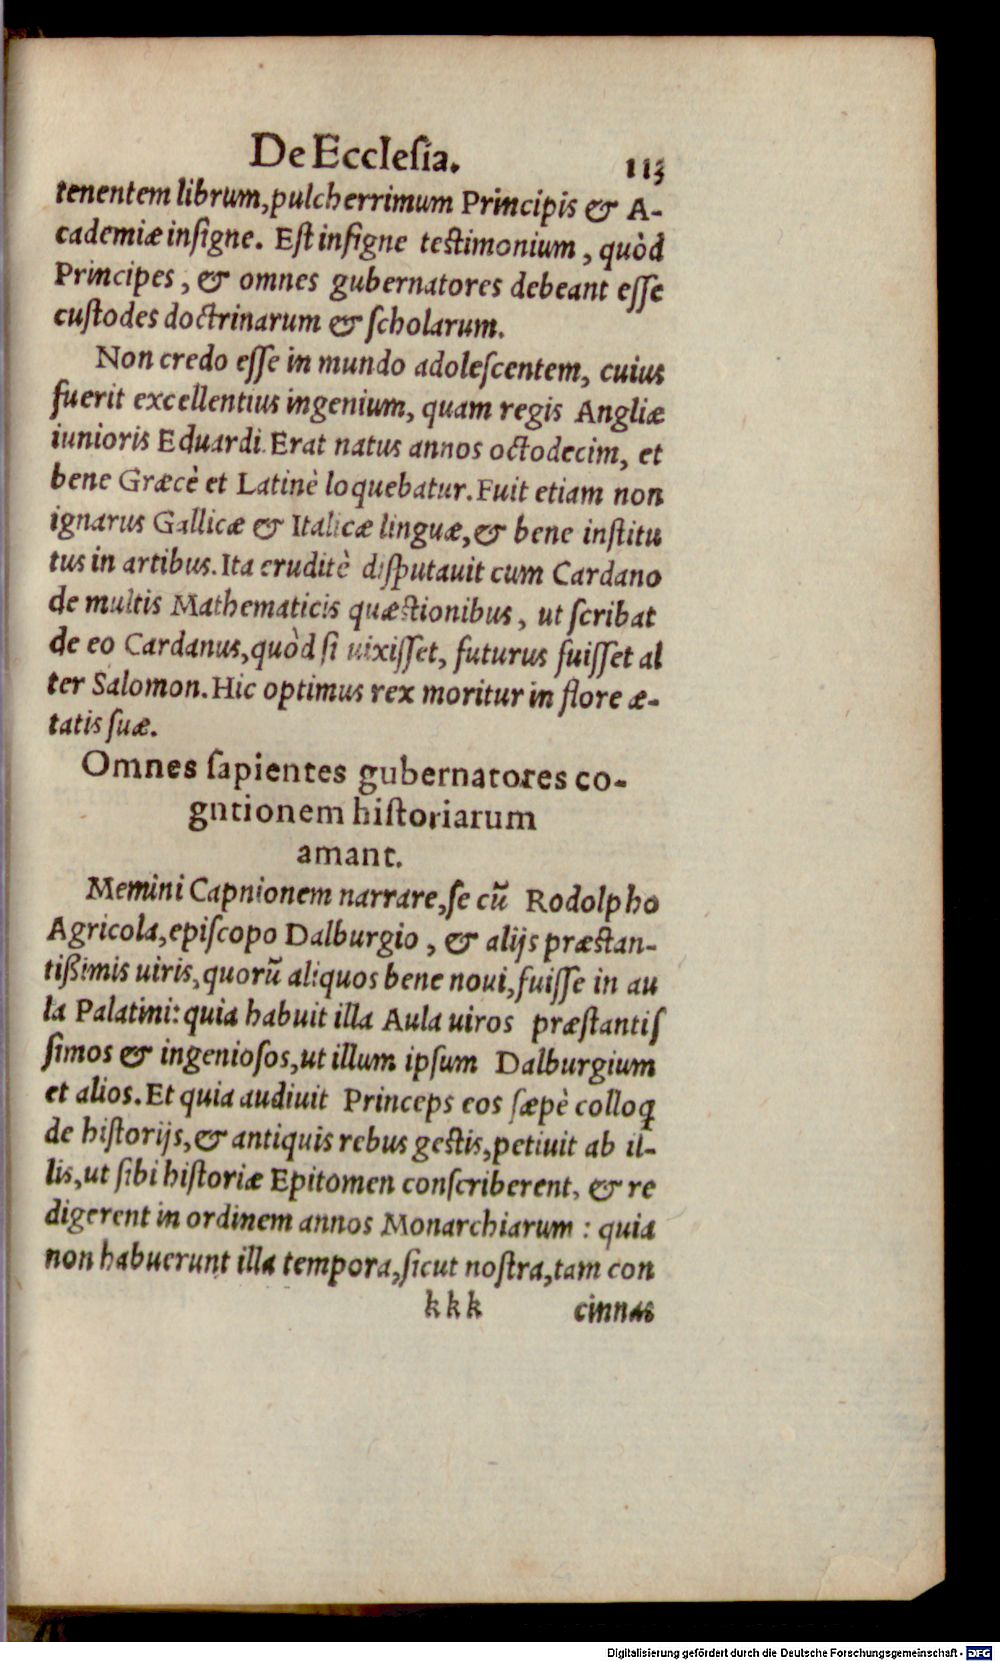 De Eccleſia. 113
tenentem librum, pulcherrimum Principis & A-
cademiæ inſigne. Eſt inſigne teſtimonium, quòd
Principes, & omnes gubernatores debeant eſſe
cuſtodes doctrinarum & ſcholarum.
Non credo eſſe in mundo adoleſcentem, cuius
fuerit excellentius ingenium, quam regis Angliæ
iunioris Eduardi. Erat natus annos octodecim, et
bene Græcè et Latinè loquebatur. Fuit etiam non
ignarus Gallicæ & Italicæ linguæ, & bene inſtitu
tus in artibus. Ita eruditè diſputauit cum Cardano
de multis Mathematicis quæſtionibus, ut ſcribat
de eo Cardanus, quòd ſi uixiſſet, futurus fuiſſet al
ter Salomon. Hic optimus rex moritur in flore æ-
tatis ſuæ.
Omnes ſapientes gubernatores co-
gnitionem hiſtoriarum
amant.
Memini Capnionem narrare, ſe cũ Rodolpho
Agricola, epiſcopo Dalburgio, & alijs præſtan-
tißimis uiris, quorũ aliquos bene noui, fuiſſe in au
la Palatini: quia habuit illa Aula uiros præſtantiſ
ſimos & ingenioſos, ut illum ipſum Dalburgium
et alios. Et quia audiuit Princeps eos ſæpè colloq
de hiſtorijs, & antiquis rebus geſtis, petiuit ab il-
lis, ut ſibi hiſtoriæ Epitomen conſcriberent, & re
digerent in ordinem annos Monarchiarum : quia
non habuerunt illa tempora, ſicut noſtra, tam con
kkk cinnas
Digitalisierung gefördert durch die Deutsche Forschungsgemeinschaft - DFG